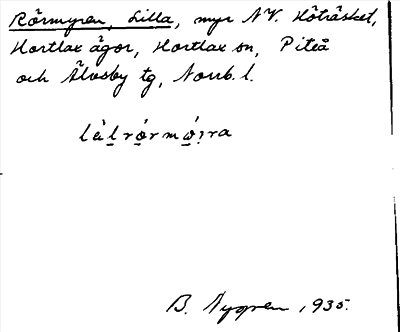 Rörmyren, Lilla, myr NV. Höträsket,
Hortlax ägor, Hortlax sn, Piteå
och Älvsby tg, Norrb. l.
B. Nygren, 1935.